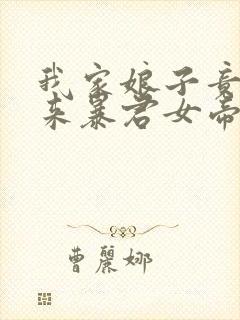 我家娘子竟
来暴君女帝
曹麗娜